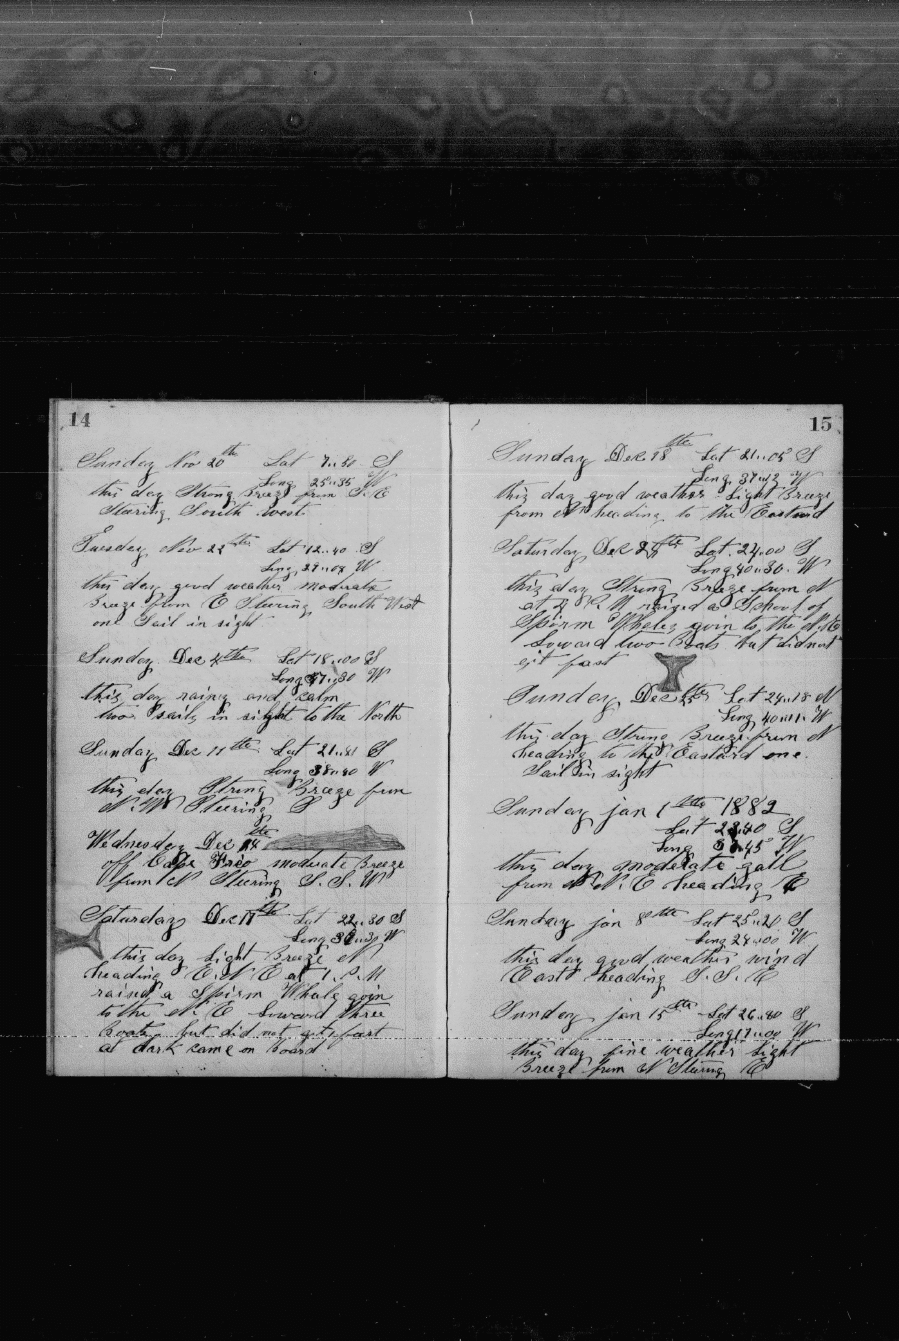 14
Sunday Nov 20th Lat 7..50 S
Long 25..35 W
this day Strong Breeze from S. E
Stearing South west
Tuesday Nov 22th Lat 12..40 S
Long 29..08 W
this day good weather moderate
Breeze from E Sturing South West
one Sail in sight
Sunday Dec 4th Lat 18..00 S
Long 37..30 W
this day rainy and calm
two sails in sight to the North
Sunday Dec 11th Lat 21..41 S
Long 38..40 W
this day Strong Breeze from
N. W Steering S
Wednesday Dec 14th
off Cape Frio moderate Breeze
from N Steering S. S. W
Saturday Dec 17th Lat 22..30 S
Long 38..30 W
this day Light Breeze N
heading E. N. E at 1. P. M
raind a Spirm Whale goin
to the N. E Loward three
Boats but did not git fast
at dark came on board
15
Sunday Dec 18th Lat 21..05 S
Long. 37..12 W
this day good weather Light Breeze
from N heading to the Eastard
Saturday Dec 24th Lat. 24.00 S
Long 40..30. W
this day Strong Breeze from N
at 2 P. M raiged a School of
Spirm Whales goin to the N. E
Loward two Boats but did not
git fast
Sunday Dec 25th Lat 24..18 N
Long 40..11. W
this day Strong Breeze from N
heading to the Eastard one.
Sail in sight
Sunday jan 1th 1882
Lat 28.40 S
Long 37.45 W
this day moderate gall
from N. N. E heading E
Sunday jan 8th Lat 25..20 S
Long 24..00 W
this day good weather wind
East heading S. S. E
Sunday jan 15th Lat 26..40 S
Long 17..00 W
this day fine weather Light
Breeze from N Sturing E